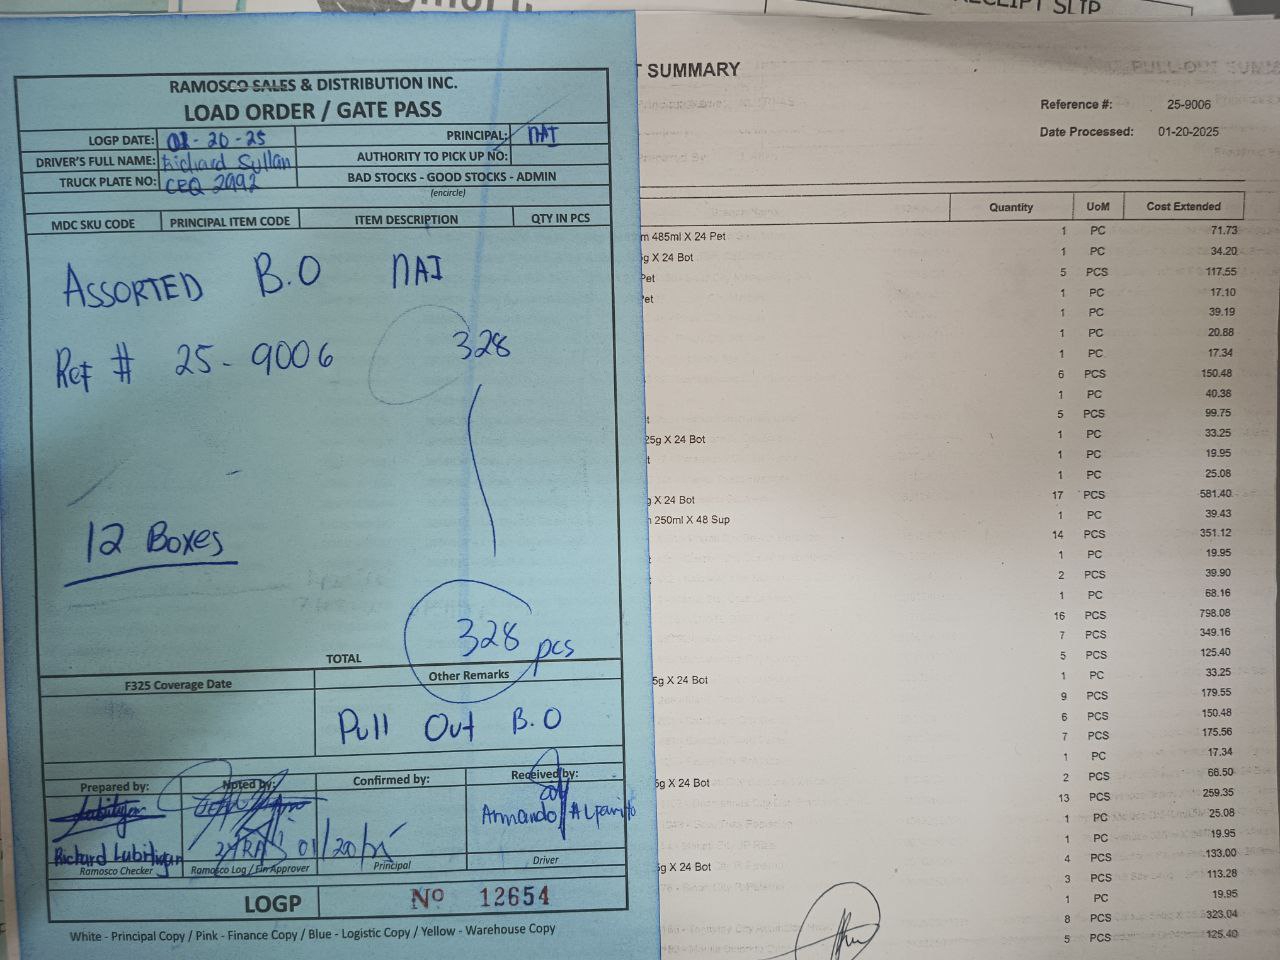 RECEIPT SLIP
RAMOSCO SALES & DISTRIBUTION INC.
LOAD ORDER / GATE PASS
LOGP DATE: 01-20-25 PRINCIPAL: NAI
DRIVER'S FULL NAME: Richard Sullan AUTHORITY TO PICK UP NO:
TRUCK PLATE NO: CEQ 2992 BAD STOCKS - GOOD STOCKS - ADMIN
(encircle)
MDC SKU CODE PRINCIPAL ITEM CODE ITEM DESCRIPTION QTY IN PCS
ASSORTED B.O NAI
Ref # 25-9006 328
12 Boxes
328 pcs
TOTAL
F325 Coverage Date Other Remarks
Pull Out B.O
Prepared by: Noted by: Confirmed by: Received by:
Richard 01/20/25 Armando
Ramosco Checker Ramosco Log / Fin Approver Principal Driver
LOGP No 12654
White - Principal Copy / Pink - Finance Copy / Blue - Logistic Copy / Yellow - Warehouse Copy
T SUMMARY
Reference #: 25-9006
Date Processed: 01-20-2025
Quantity UoM Cost Extended
485ml X 24 Pet 1 PC 71.73
g X 24 Bot 1 PC 34.20
Pet 5 PCS 117.55
et 1 PC 17.10
1 PC 39.19
1 PC 20.88
1 PC 17.34
6 PCS 150.48
1 PC 40.38
t 5 PCS 99.75
25g X 24 Bot 1 PC 33.25
t 1 PC 19.95
1 PC 25.08
g X 24 Bot 17 PCS 581.40
250ml X 48 Sup 1 PC 39.43
14 PCS 351.12
1 PC 19.95
2 PCS 39.90
1 PC 68.16
16 PCS 798.08
7 PCS 349.16
5 PCS 125.40
5g X 24 Bot 1 PC 33.25
9 PCS 179.55
6 PCS 150.48
7 PCS 175.56
1 PC 17.34
5g X 24 Bot 2 PCS 66.50
13 PCS 259.35
1 PC 25.08
1 PC 19.95
5g X 24 Bot 4 PCS 133.00
3 PCS 113.28
1 PC 19.95
8 PCS 323.04
5 PCS 125.40